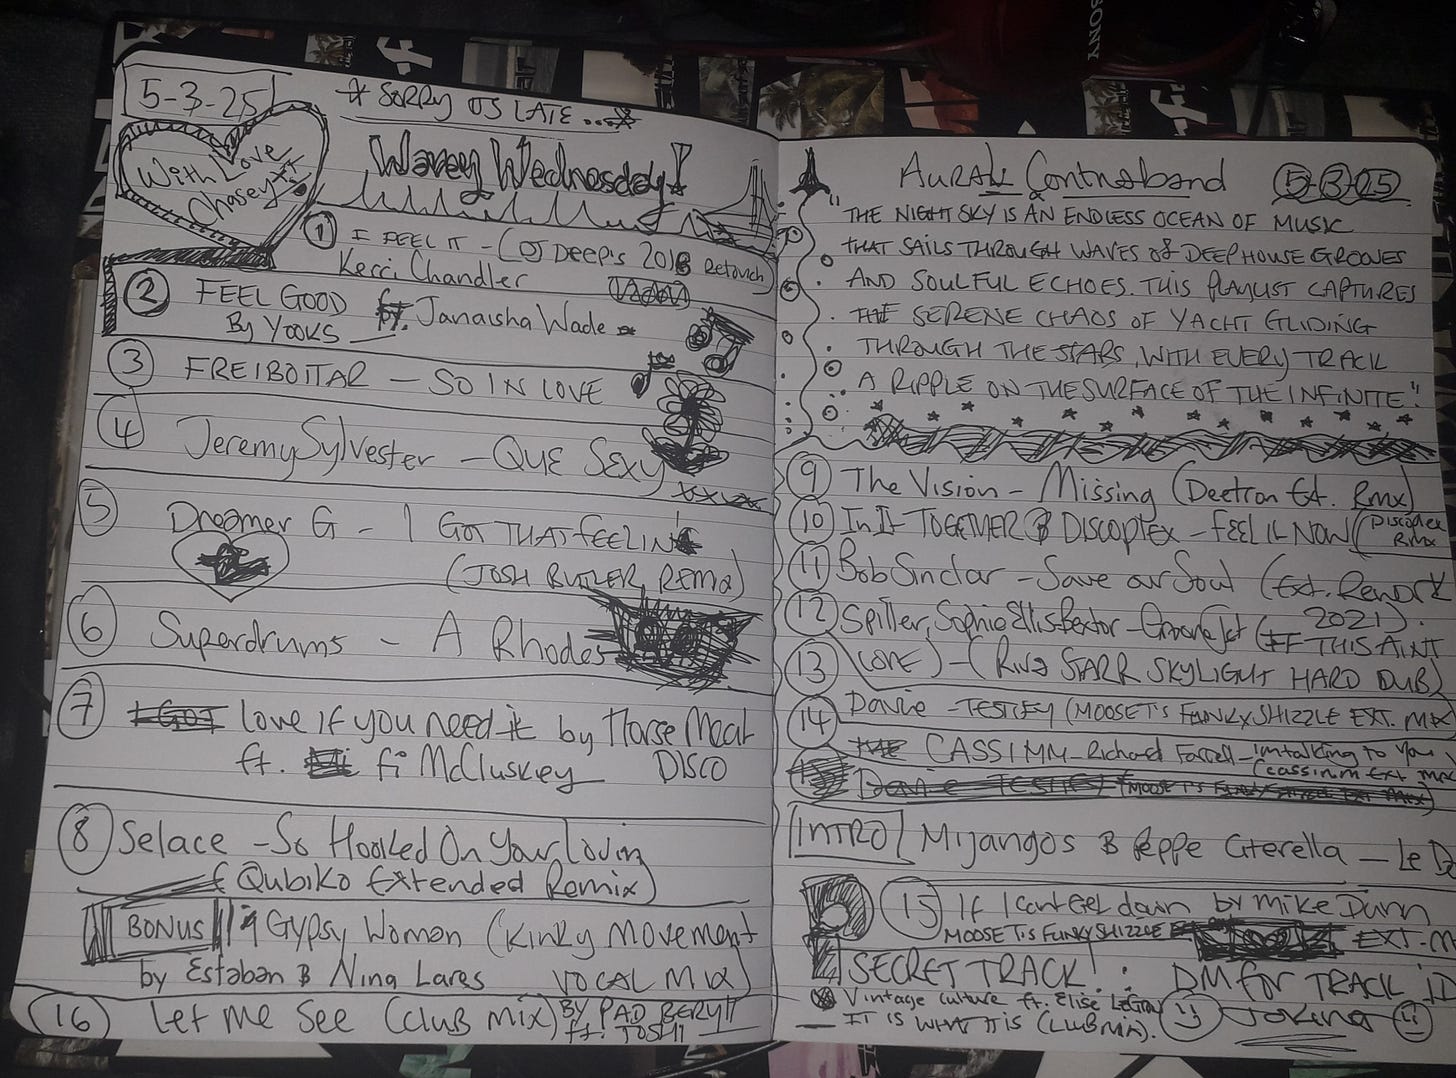 5-3-25
* SORRY ITS LATE ...*
With Love,
Chasey
Wavey Wednesday!
① I FEEL IT - (DJ DEEP'S 2016 Retouch)
Kerri Chandler
② FEEL GOOD
By YOOKS ft. Janaisha Wade
③ FREIBOITAR - SO IN LOVE
④ Jeremy Sylvester - QUE SEXY
xxxx
⑤ Dreamer G - I GOT THAT FEELIN
(JOSH BUTLER REMIX)
⑥ Superdrums - A Rhodes
⑦ I GOT love if you need it by Horse Meat
ft. fi McCluskey DISCO
⑧ Selace - So Hooked On Your Lovin
(Qubiko Extended Remix)
BONUS Gypsy Woman (Kinky Movement
by Estaban & Nina Lares VOCAL MIX)
16 Let me See (Club mix) BY PAD BERY!!
ft. TOSH!!
Aural Contraband 5-3-25
"THE NIGHT SKY IS AN ENDLESS OCEAN OF MUSIC
THAT SAILS THROUGH WAVES of DEEP HOUSE GROOVES
AND SOULFUL ECHOES. THIS PLAYLIST CAPTURES
THE SERENE CHAOS OF YACHT GLIDING
THROUGH THE STARS, WITH EVERY TRACK
A RIPPLE ON THE SURFACE OF THE INFINITE."
⑨ The Vision - Missing (Deetron Ext. Rmx)
⑩ In It TOGETHER & DISCOPLEX - FEEL IT NOW (Discoplex
Rmx
⑪ Bob Sinclar - Save our Soul (Ext. Rework
2021).
⑫ Spiller, Sophie Ellis Bextor - Groovejet (IF THIS AINT
⑬ LOVE) - (RIVA STARR SKYLIGHT HARD DUB)
⑭ Davie - TESTIFY (MOOSE T'S FUNKY SHIZZLE EXT. MIX
THE CASSIMM - Richard Farrell - Im talking to you
(cassimm Ext Mix
Davie - TESTIFY (MOOSE T'S FUNKY SHIZZLE EXT MIX)
INTRO Mijangos & Peppe Citarella - Le D
⑮ If I Cant Get down by Mike Dunn
MOOSE T'S FUNKY SHIZZLE EXT. M
SECRET TRACK! : DM for TRACK iD
Vintage Culture ft. Elise LeGrow
- IT IS WHAT IT IS (CLUB MIX).